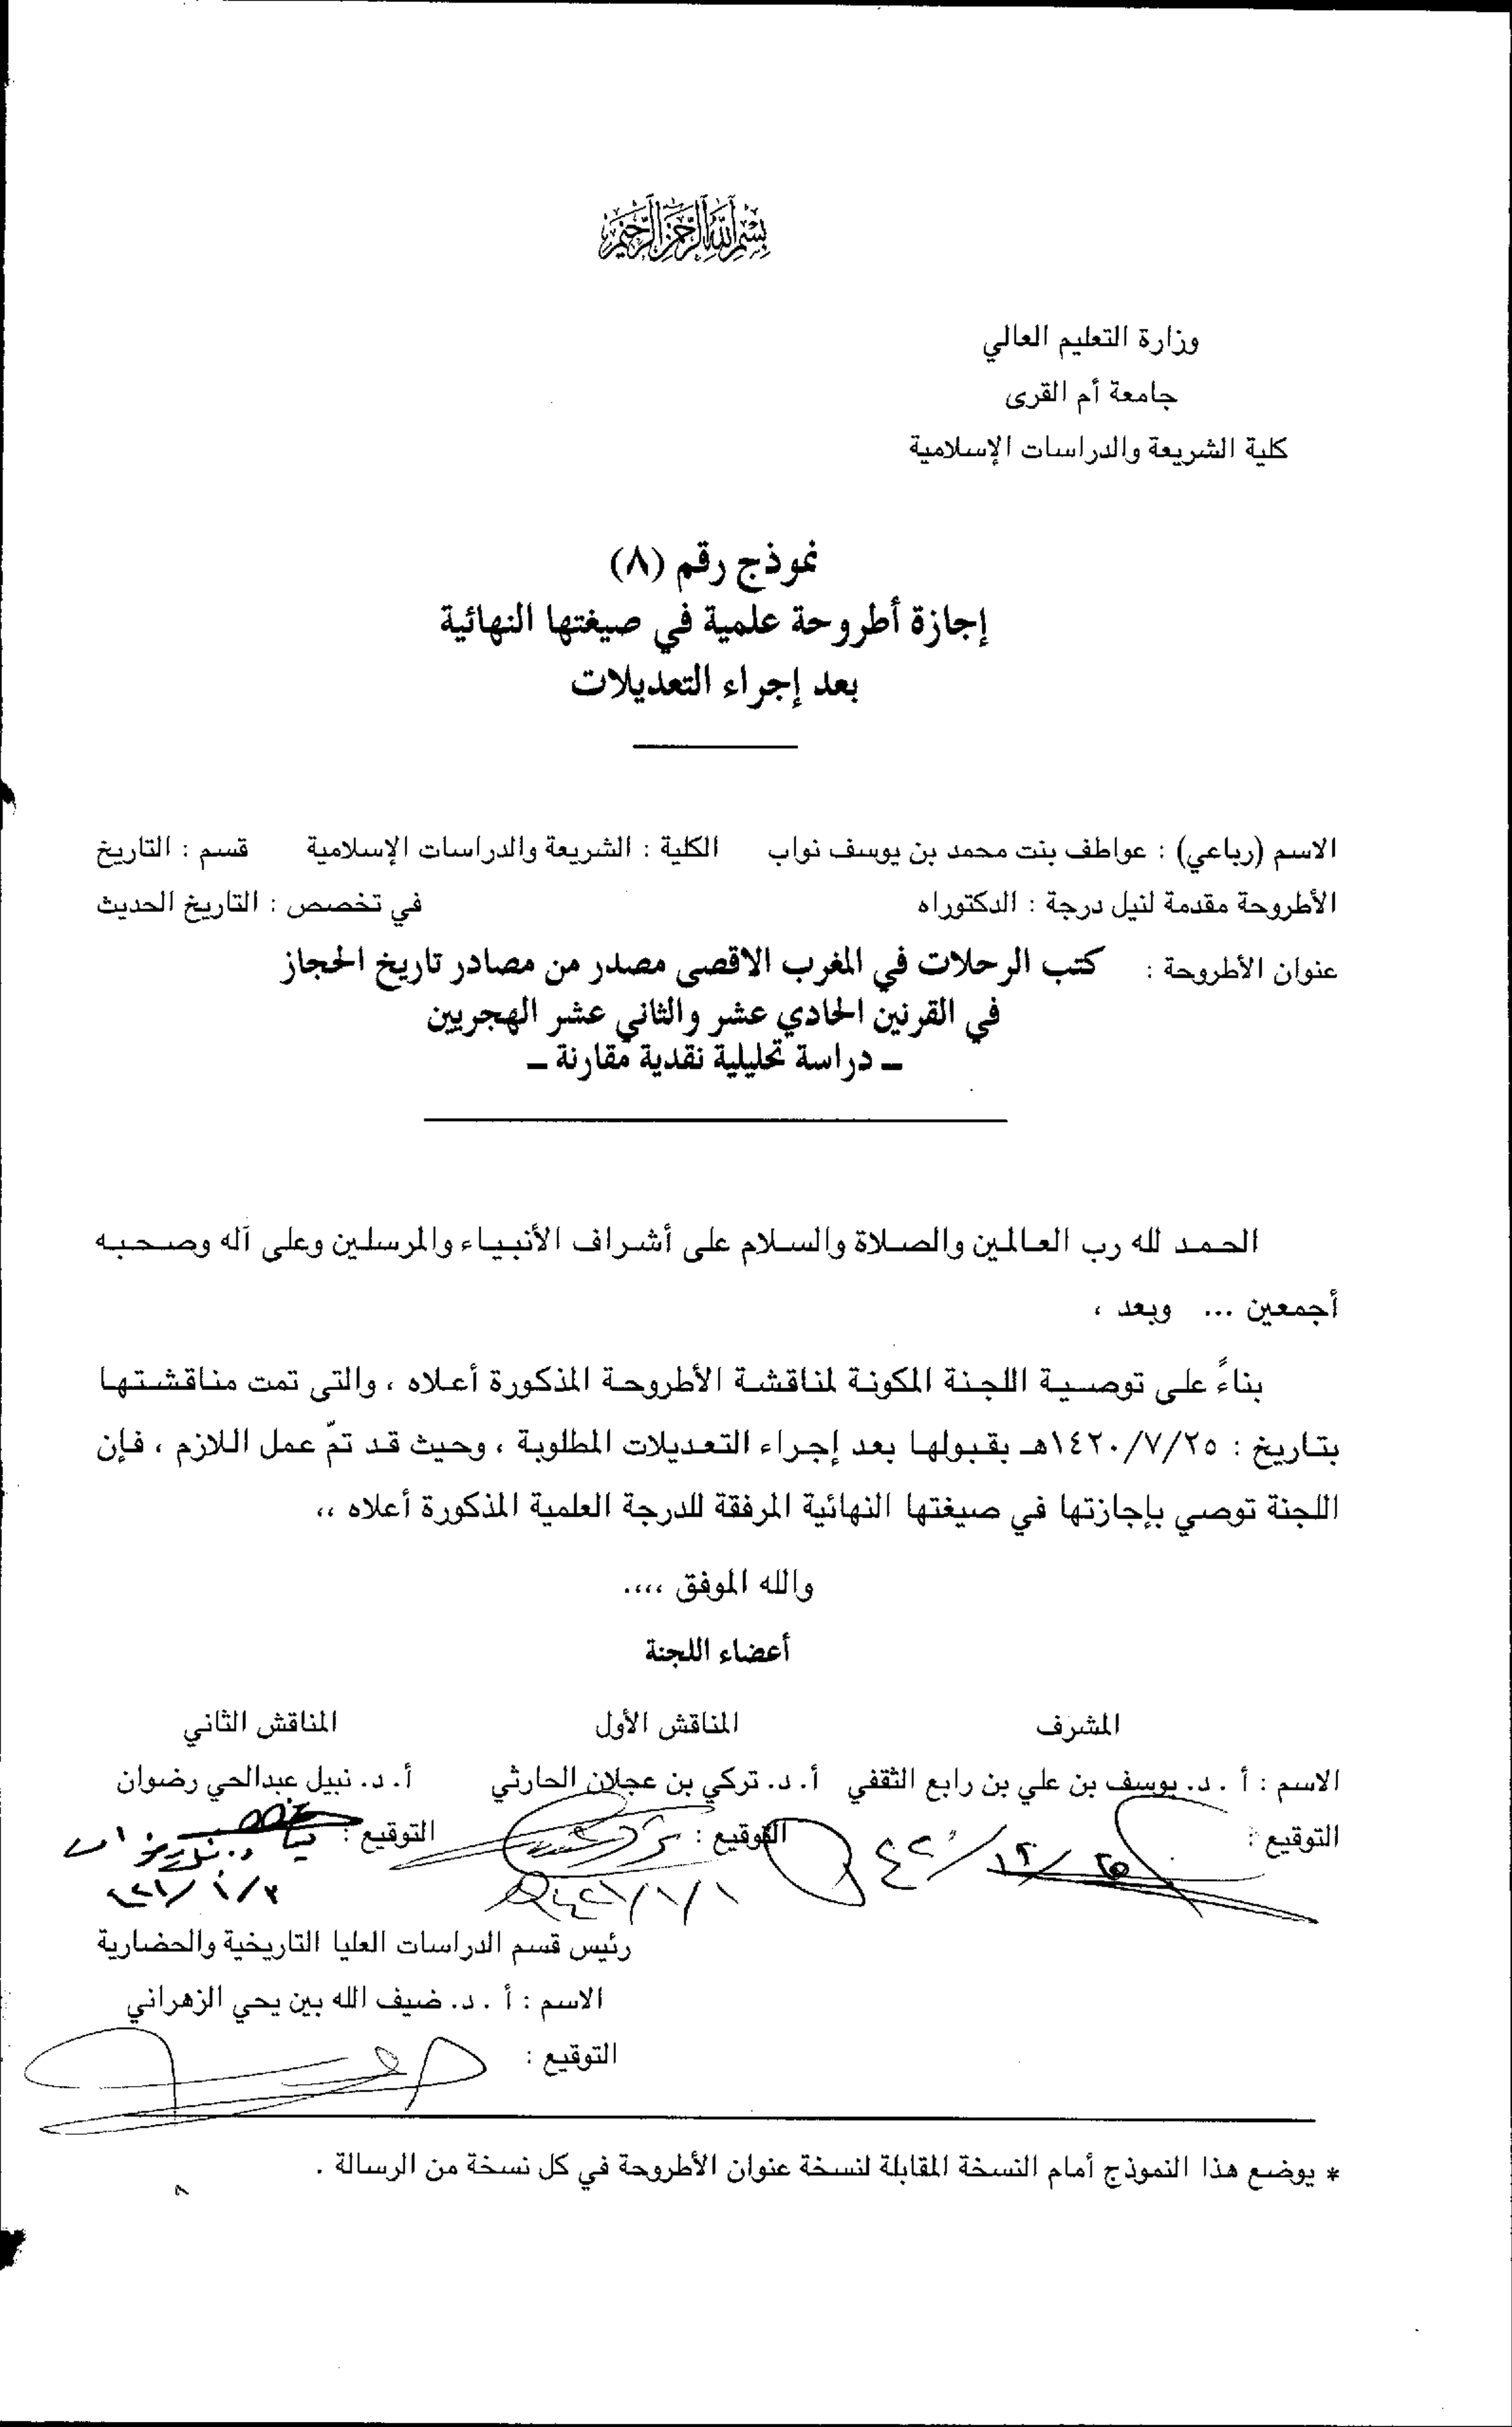 بسم الله الرحمن الرحيم
وزارة التعليم العالي
جامعة أم القرى
كلية الشريعة والدراسات الإسلامية
نموذج رقم (٨)
إجازة أطروحة علمية في صيغتها النهائية
بعد إجراء التعديلات
الاسم (رباعي) : عواطف بنت محمد بن يوسف نواب الكلية : الشريعة والدراسات الإسلامية قسم : التاريخ
الأطروحة مقدمة لنيل درجة : الدكتوراه في تخصص : التاريخ الحديث
عنوان الأطروحة : كتب الرحلات في المغرب الاقصى مصدر من مصادر تاريخ الحجاز
في القرنين الحادي عشر والثاني عشر الهجريين
ـ دراسة تحليلية نقدية مقارنة ـ
الحمد لله رب العالمين والصلاة والسلام على أشراف الأنبياء والمرسلين وعلى آله وصحبه
أجمعين ... وبعد ،
بناءً على توصية اللجنة المكونة لمناقشة الأطروحة المذكورة أعلاه ، والتى تمت مناقشتها
بتاريخ : ١٤٢٠/٧/٢٥هـ بقبولها بعد إجراء التعديلات المطلوبة ، وحيث قد تمّ عمل اللازم ، فإن
اللجنة توصي بإجازتها في صيغتها النهائية المرفقة للدرجة العلمية المذكورة أعلاه ،،
والله الموفق ،،،،
أعضاء اللجنة
المشرف المناقش الأول المناقش الثاني
الاسم : أ . د. يوسف بن علي بن رابع الثقفي أ. د. تركي بن عجلان الحارثي أ. د. نبيل عبدالحي رضوان
التوقيع : التوقيع : التوقيع :
رئيس قسم الدراسات العليا التاريخية والحضارية
الاسم : أ . د. ضيف الله بين يحي الزهراني
التوقيع :
* يوضع هذا النموذج أمام النسخة المقابلة لنسخة عنوان الأطروحة في كل نسخة من الرسالة .